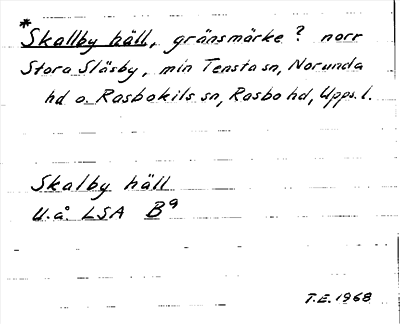 *Skallby häll, gränsmärke? norr
Stora Släsby, min Tensta sn, Norunda
hd o. Rasbokils sn, Rasbo hd, Upps. l.
Skalby häll
U.å. LSA B9
T.E. 1968